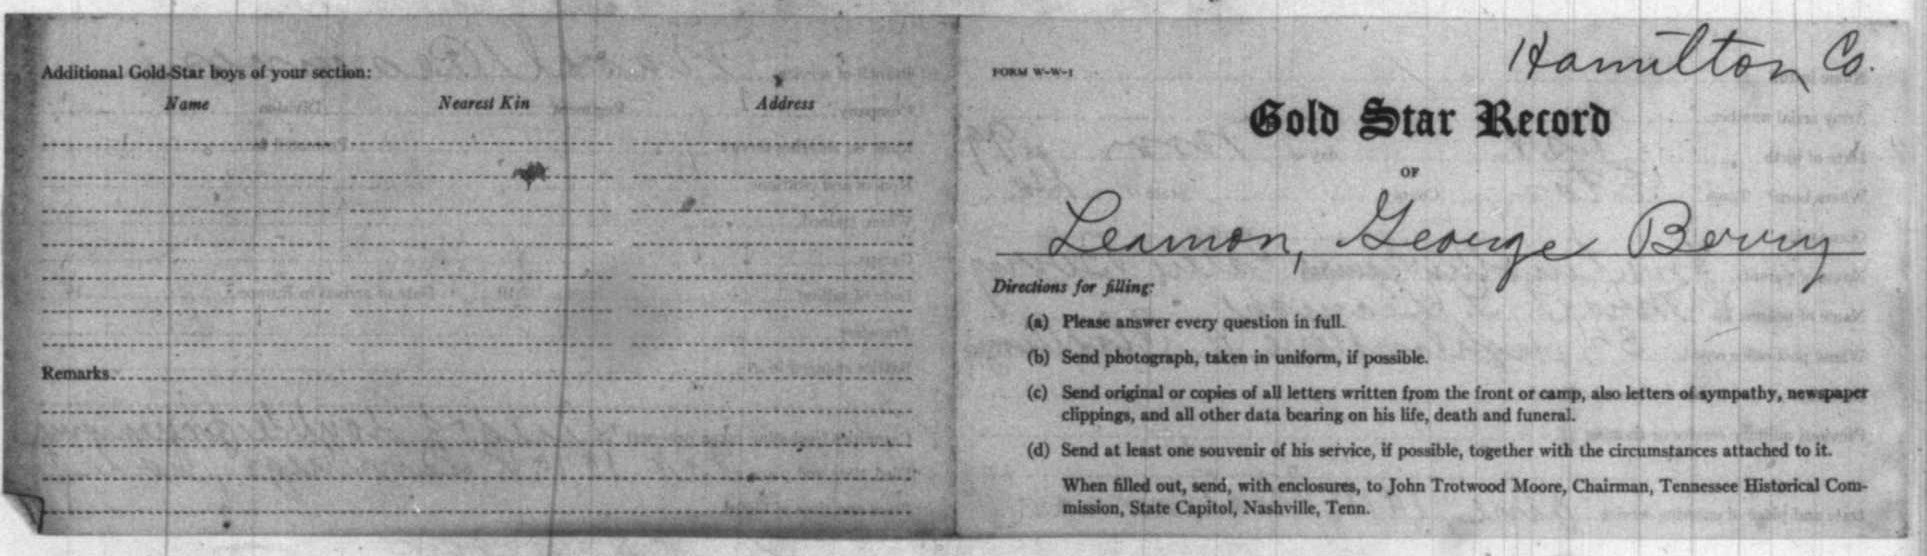 Additional Gold-Star boys of your section:
Name Nearest Kin Address
Remarks
Hamilton Co.
FORM W-W-1
Gold Star Record
OF
Leamon, George Berry
Directions for filling:
(a) Please answer every question in full.
(b) Send photograph, taken in uniform, if possible.
(c) Send original or copies of all letters written from the front or camp, also letters of sympathy, newspaper
clippings, and all other data bearing on his life, death and funeral.
(d) Send at least one souvenir of his service, if possible, together with the circumstances attached to it.
When filled out, send, with enclosures, to John Trotwood Moore, Chairman, Tennessee Historical Com-
mission, State Capitol, Nashville, Tenn.